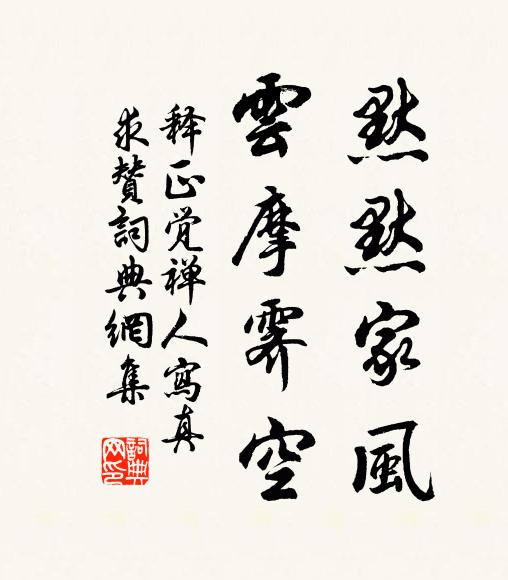 默默家風
雲摩霽空
释正觉禅人寫真
求赞詞典網集
詞典
网印